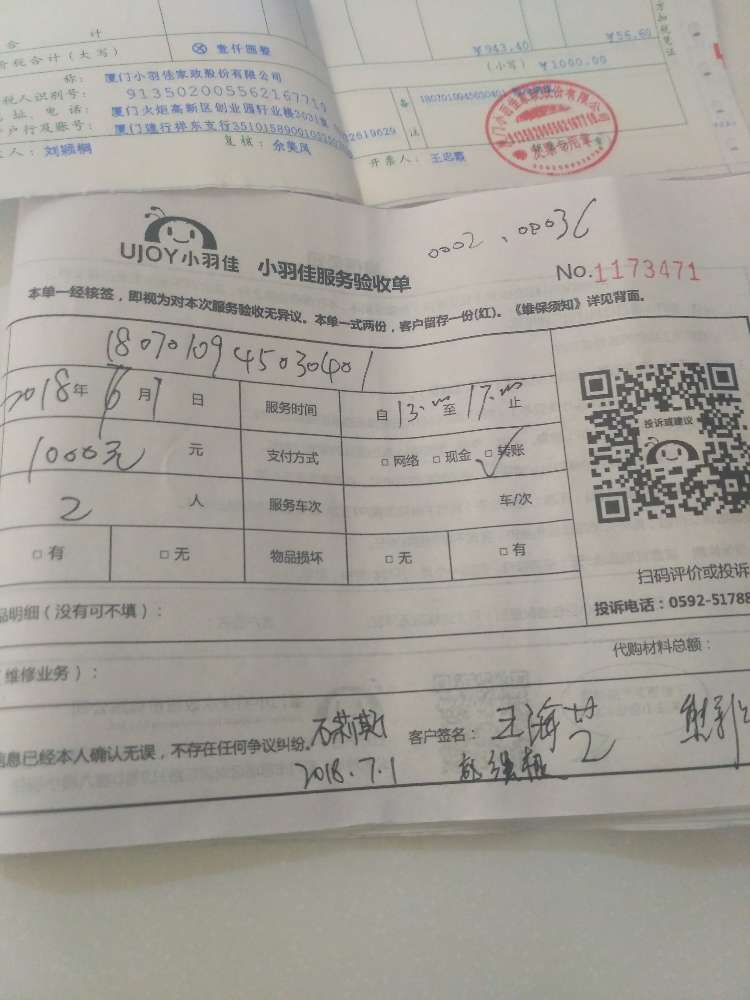 合 计
¥943.40
¥56.60
价税合计(大写)
壹仟圆整
(小写) ¥1000.00
称: 厦门小羽佳家政股份有限公司
税人识别号:
地址、电话: 厦门火炬高新区创业园轩业楼3031室
开户行及账号:
备注
复核: 余美凤
开票人: 王忠霞
人: 刘颖桐
发票专用章
UJOY小羽佳 小羽佳服务验收单
0002、0003
No.1173471
本单一经核签,即视为对本次服务验收无异议。本单一式两份,客户留存一份(红)。《维保须知》详见背面。
1807010945030401
2018年 月1日 服务时间 自13:00至17:00止
1000元 元 支付方式 □网络 □现金 □转账
2 人 服务车次 车/次
□有 □无 物品损坏 □无 □有
投诉或建议
扫码评价或投诉
投诉电话:0592-51788
品明细(没有可不填):
代购材料总额:
维修业务):
信息已经本人确认无误,不存在任何争议纠纷。
客户签名: 王海
2018.7.1